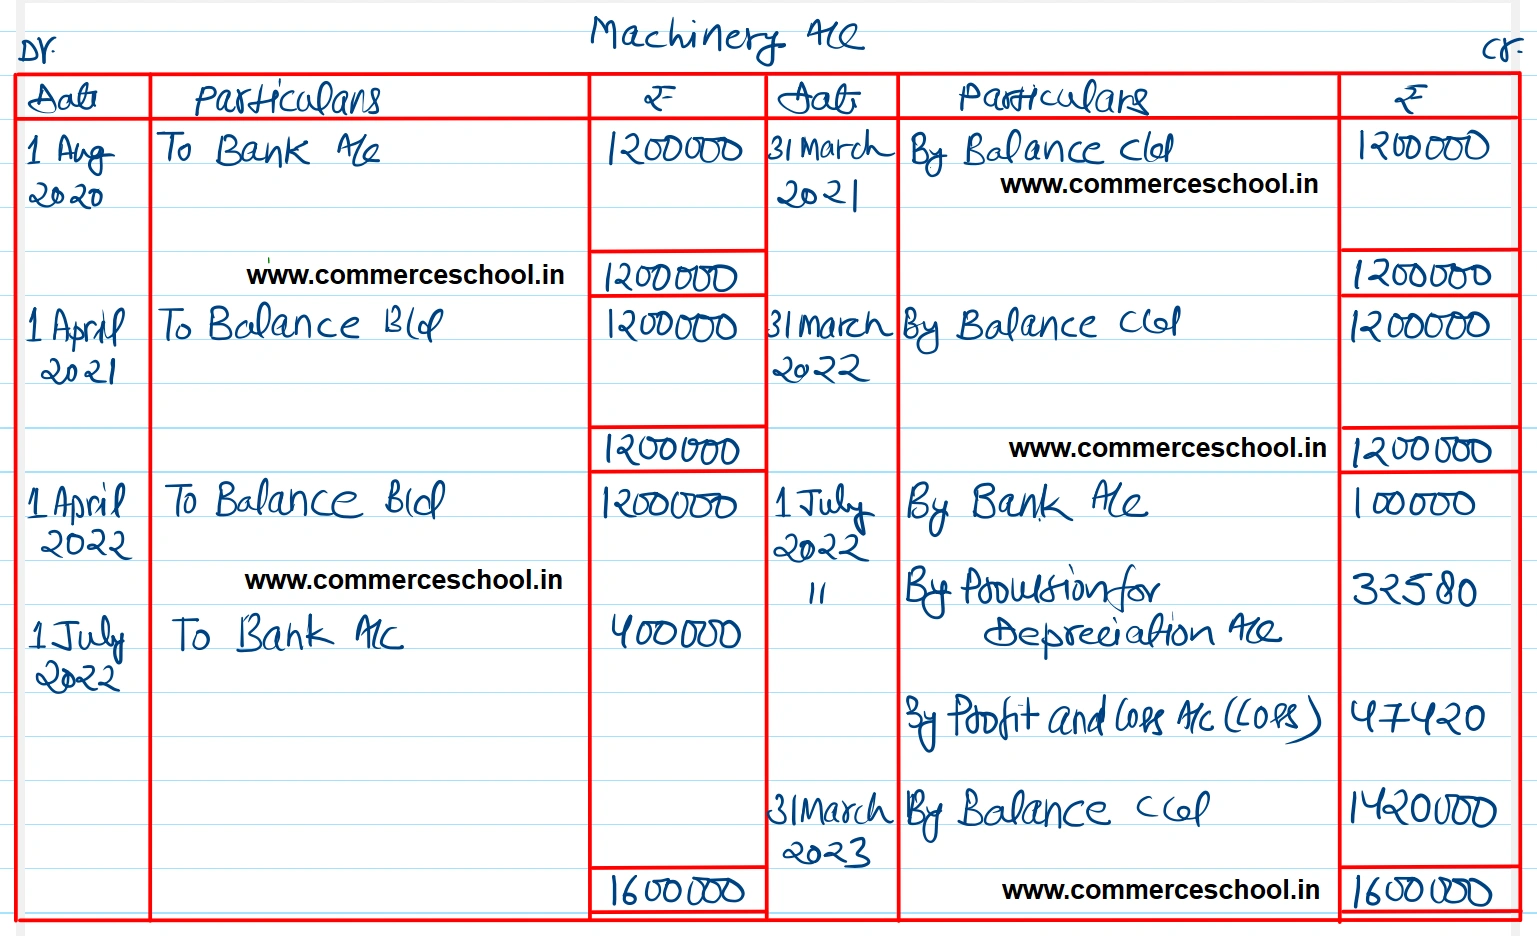 Machinery A/c
Dr. Cr.
Date Particulars ₹ Date Particulars ₹
1 Aug To Bank A/c 1200000 31 March By Balance c/d 1200000
2020 2021
www.commerceschool.in
www.commerceschool.in 1200000 1200000
1 April To Balance B/d 1200000 31 March By Balance C/d 1200000
2021 2022
1200000 www.commerceschool.in 1200000
1 April To Balance B/d 1200000 1 July By Bank A/c 100000
2022 2022
www.commerceschool.in " By Provision for 32580
Depreciation A/c
1 July To Bank A/c 400000
2022
By Profit and Loss A/c (Loss) 47420
31 March By Balance C/d 1420000
2023
1600000 www.commerceschool.in 1600000